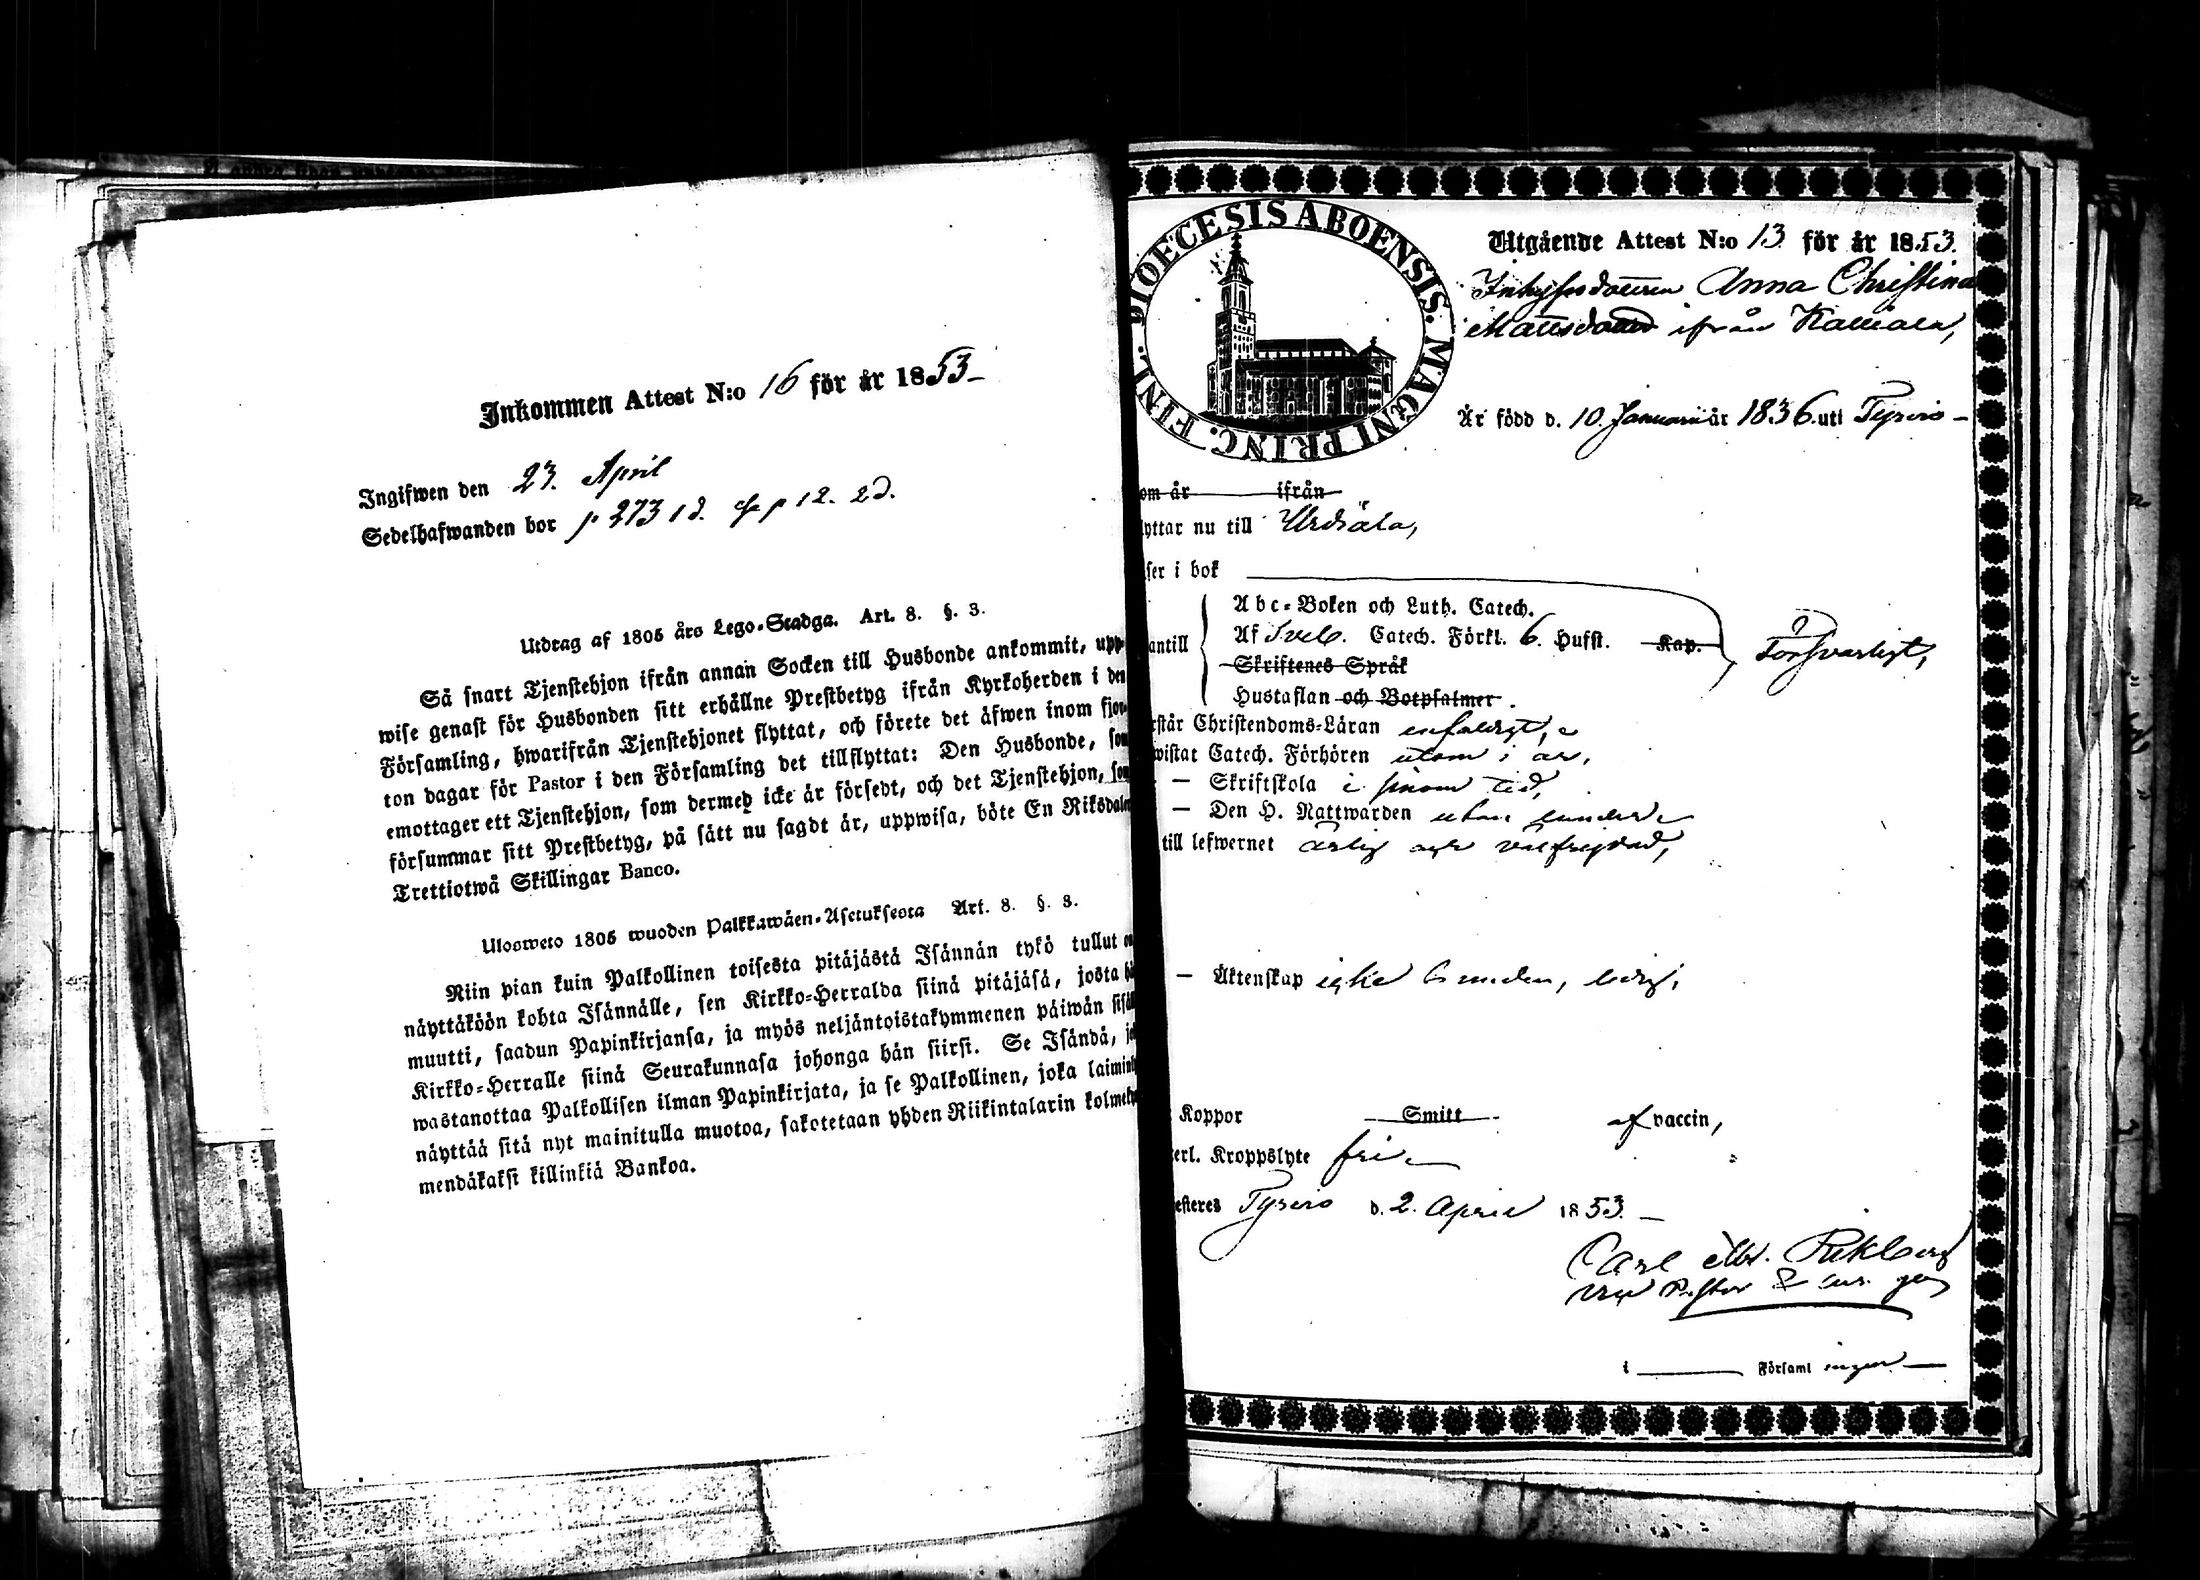 Inkommen Attest N:o 16 för år 1853
Ingifwen den 23. April
Sedelhafwanden bor p 273 1 d. p 12. 2 d.
Utdrag af 1805 års Lego-Stadga. Art. 8. §. 3.
Så snart Tjenstehjon ifrån annan Socken till Husbonde ankommit, upp-
wise genast för Husbonden sitt erhållne Prestbetyg ifrån Kyrkoherden i den
Församling, hwarifrån Tjenstehjonet flyttat, och förete det äfwen inom fjor-
ton dagar för Pastor i den Församling det tillflyttat: Den Husbonde, som
emottager ett Tjenstehjon, som dermed icke är försedt, och det Tjenstehjon, som
försummar sitt Prestbetyg, på sätt nu sagdt är, uppwisa, böte En Riksdaler
Trettiotwå Skillingar Banco.
Ulosweto 1805 wuoden Palkkawäen-Asetuksesta Art. 8. §. 3.
Niin pian kuin Palkollinen toisesta pitäjästä Isännän tykö tullut on
näyttäköön kohta Isännälle, sen Kirkko-Herralda siinä pitäjäsä, josta hä
muutti, saadun Papinkirjansa, ja myös neljäntoistakymmenen päiwän sisäl
Kirkko-Herralle siinä Seurakunnasa johonga hän siirsi. Se Isändä, jo
wastanottaa Palkollisen ilman Papinkirjata, ja se Palkollinen, joka laimin
näyttää sitä nyt mainitulla muotoa, sakotetaan yhden Riikintalarin kolmek
mendäkaksi killinkiä Bankoa.
DIOECESIS ABOENSIS. MAGNI PRINC. FINL.
Utgående Attest N:o 13 för år 1853.
Inhysesdottren Anna Christina
Mattsdotter ifrån Kalliala,
Är född d. 10. Januari år 1836. uti Tyrvis
om år ifrån
lyttar nu till Urdiala,
ser i bok
Abc-Boken och Luth. Catech.
antill Af Sveb. Catech. Förkl. 6. Hufst. Kap. Försvarligt,
Skriftenes Språk
Hustaflan och Botpsalmer.
rstår Christendoms-Läran enfaldigt,
wistat Catech. Förhören utom i år,
— Skriftskola i sinom tid,
— Den H. Nattwarden utan hinder
till lefwernet ärlig och välfrejdad,
— Äktenskap icke bunden, ledig,
Koppor Smitt af vaccin,
erl. Kroppslyte fri
esteres Tyrvis d. 2. April 1853.
Carl
Past
i Församl ingen